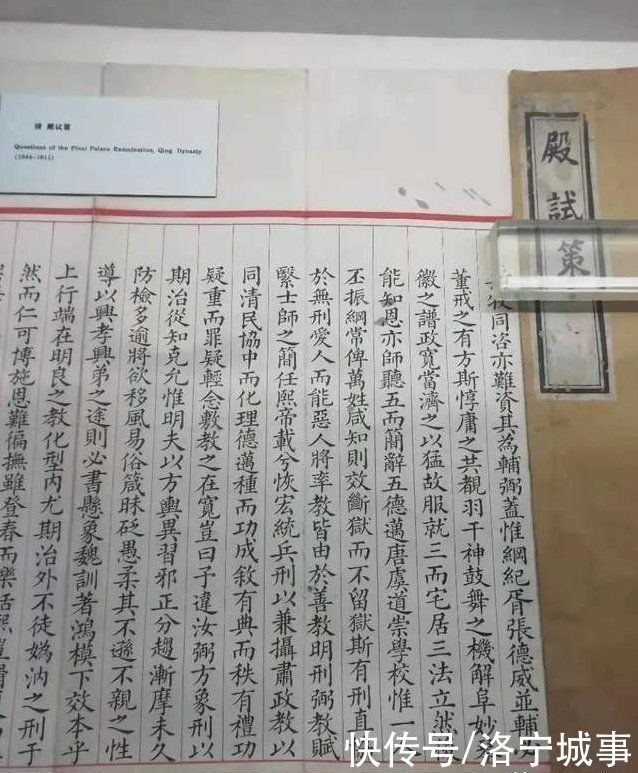 清 殿试策
Questions of the Final Palace Examination, Qing Dynasty
(1644-1911)
殿試策
牧同咨亦難資其為輔弼蓋惟綱紀胥張德威並輔
董戒之有方斯惇庸之共覩羽干神鼓舞之機解阜妙
徽之譜政寬當濟之以猛故服就三而宅居三法立
能知恩亦師聽五而簡辭五德邁唐虞道崇學校惟一
丕振綱常俾萬姓咸知則效斷獄而不留獄斯有刑直
於無刑愛人而能惡人將率教皆由於善教明刑弼教賦
緊士師之簡任熙帝載兮恢宏統兵刑以兼攝肅政教以
同清民協中而化理德邁種而功成敘有典而秩有禮功
疑重而罪疑輕念敷教之在寬豈曰予違汝弼方象刑以
期治從知克允惟明夫以方輿異習邪正分趨漸摩未久
防檢多逾將欲移風易俗箴昧砭愚柔其不遜不親之性
導以興孝興弟之途則必書懸象魏訓著鴻模下效本乎
上行端在明良之教化型內尤期治外不徒媯汭之刑于
然而仁可博施恩難徧撫雖登春而樂
快传号/洛宁城事